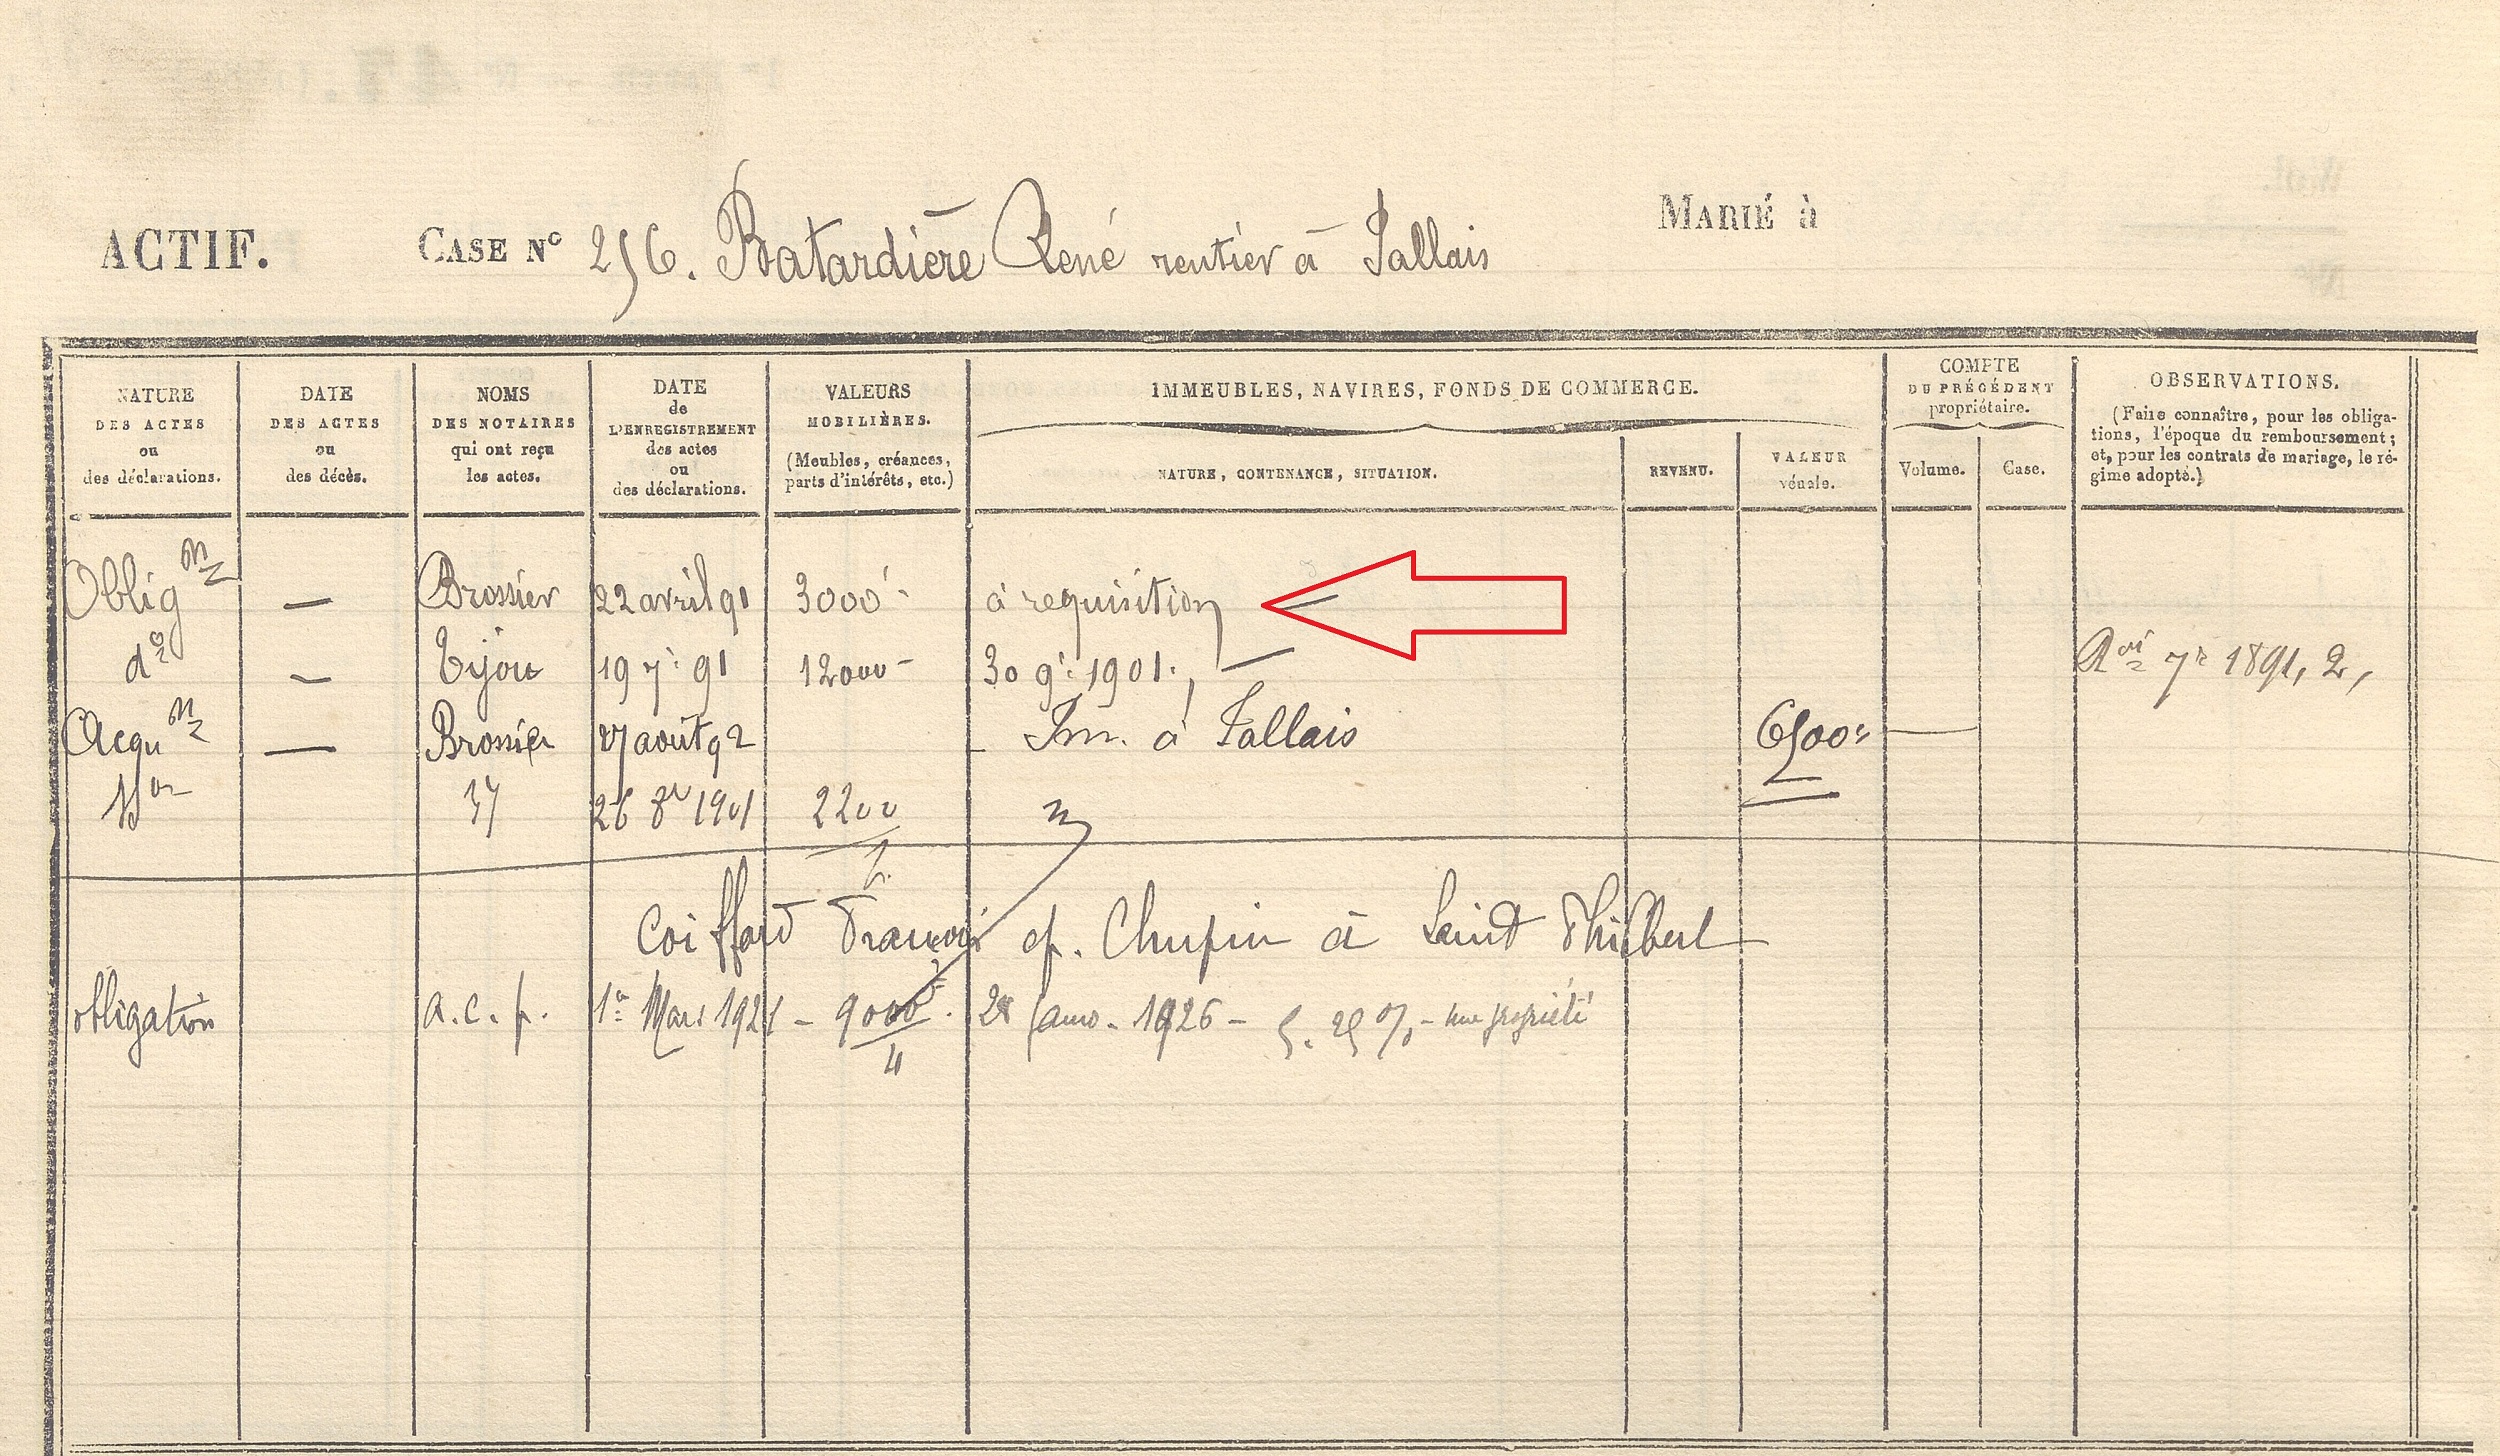 ACTIF. CASE N° 256. Batardière René rentier à Jallais MARIÉ à
NATURE DES ACTES ou des déclarations.
DATE DES ACTES ou des décès.
NOMS DES NOTAIRES qui ont reçu les actes.
DATE de L'ENREGISTREMENT des actes ou des déclarations.
VALEURS MOBILIÈRES. (Meubles, créances, parts d'intérêts, etc.)
IMMEUBLES, NAVIRES, FONDS DE COMMERCE.
NATURE, CONTENANCE, SITUATION.
REVENU.
VALEUR vénale.
COMPTE DU PRÉCÉDENT propriétaire.
Volume.
Case.
OBSERVATIONS.
(Faire connaître, pour les obliga-
tions, l'époque du remboursement;
et, pour les contrats de mariage, le ré-
gime adopté.)
Oblig on — Brossier 22 avril 91 3000 à requisition —
d° — Tijou 19 7r 91 12000 - 30 9r 1901. — 7r 1891, 2,
Acqu on — Brossier 27 août 92 - Im. à Jallais 6500
37 26 8r 1901 2200
Coiffard François ep. Chupin à Saint Philbert
obligation a.c.p. 1er Mars 1921 - 9000 / 4 1926 - 5.25 % - nue propriété